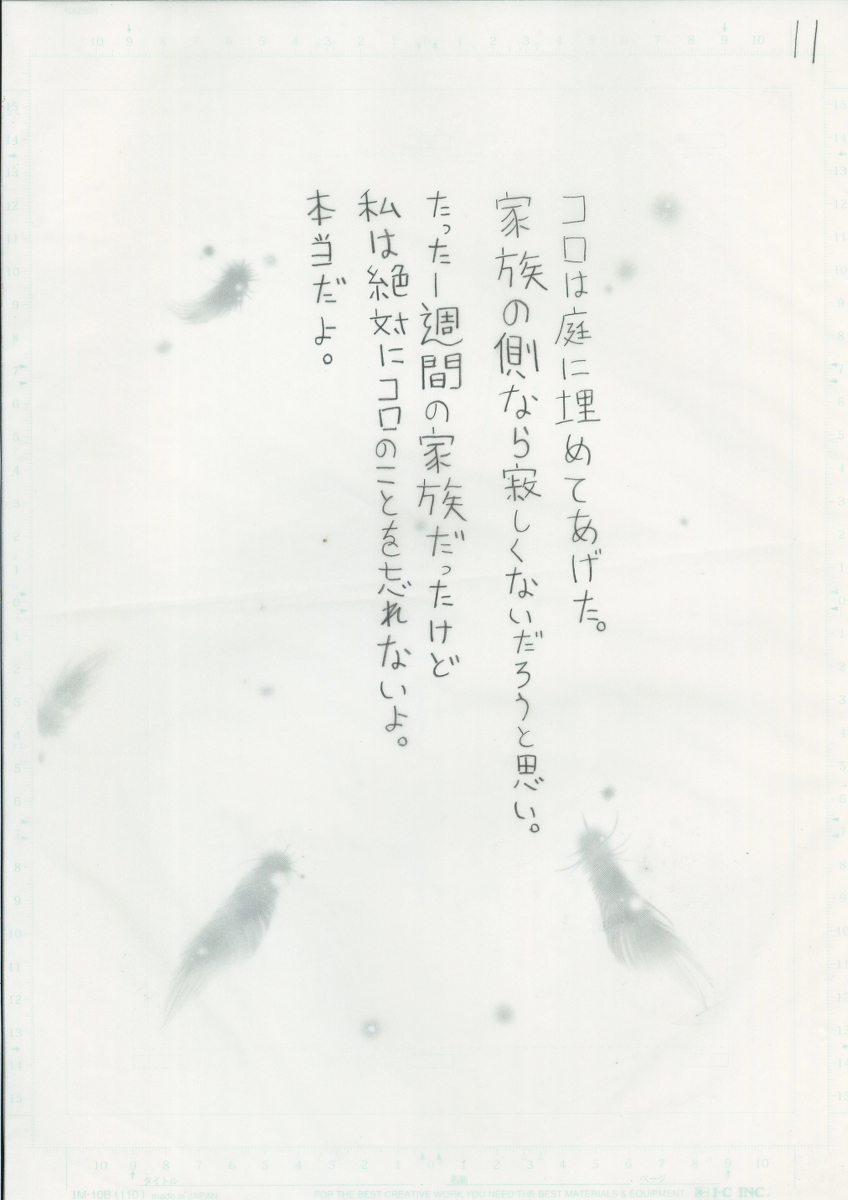 11
コロは庭に埋めてあげた。
家族の側なら寂しくないだろうと思い。
たった一週間の家族だったけど
私は絶対にコロのことを忘れないよ。
本当だよ。
タイトル
名前
ページ
IM-10B 1110
made of JAPAN
FOR THE BEST CREATIVE WORK, YOU NEED THE BEST MATERIALS & EQUIPMENT
I・C INC.